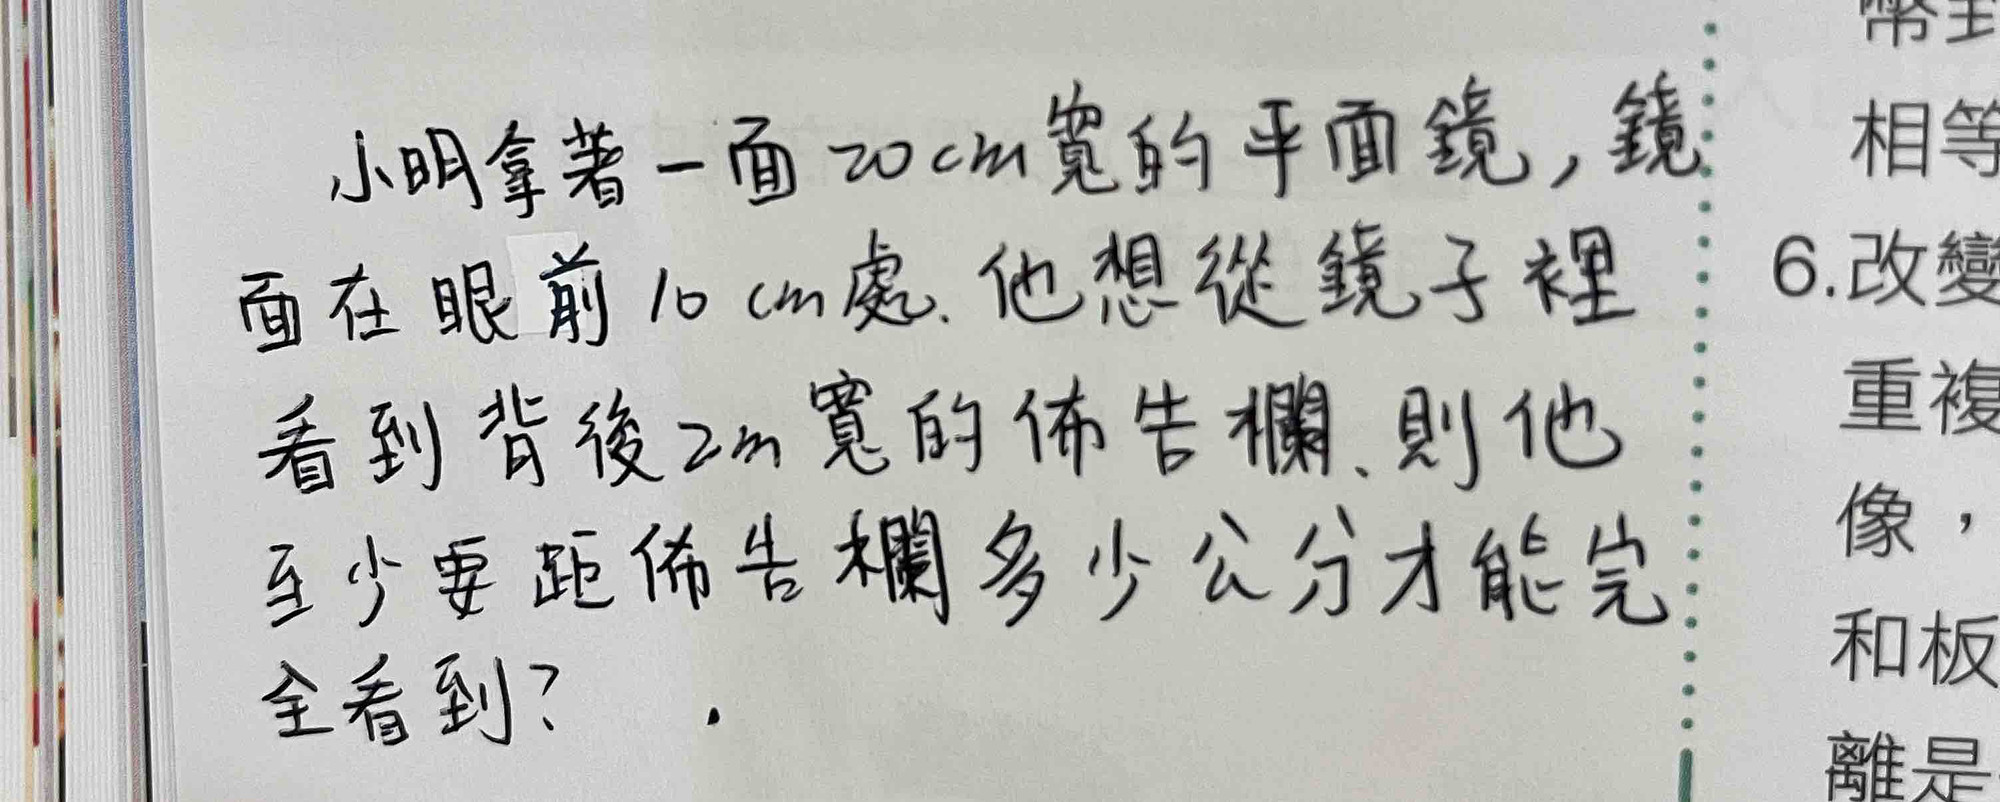 小明拿著一面20cm寬的平面鏡,鏡
面在眼前10cm處.他想從鏡子裡
看到背後2m寬的佈告欄、則他
至少要距佈告欄多少公分才能完
全看到?
幣
相等
6.改變
重複
像，
和板
離是